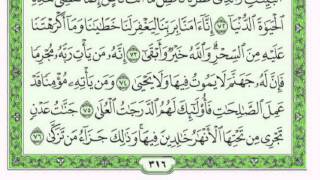 ٱلْحَيَوٰةَ ٱلدُّنْيَآ ﴿٧٢﴾ إِنَّآ ءَامَنَّا بِرَبِّنَا لِيَغْفِرَ لَنَا خَطَٰيَٰنَا وَمَآ أَكْرَهْتَنَا
عَلَيْهِ مِنَ ٱلسِّحْرِ وَٱللَّهُ خَيْرٌ وَأَبْقَىٰٓ ﴿٧٣﴾ إِنَّهُۥ مَن يَأْتِ رَبَّهُۥ مُجْرِمًا
فَإِنَّ لَهُۥ جَهَنَّمَ لَا يَمُوتُ فِيهَا وَلَا يَحْيَىٰ ﴿٧٤﴾ وَمَن يَأْتِهِۦ مُؤْمِنًا قَدْ
عَمِلَ ٱلصَّٰلِحَٰتِ فَأُو۟لَٰٓئِكَ لَهُمُ ٱلدَّرَجَٰتُ ٱلْعُلَىٰ ﴿٧٥﴾ جَنَّٰتُ عَدْنٍ
تَجْرِى مِن تَحْتِهَا ٱلْأَنْهَٰرُ خَٰلِدِينَ فِيهَا وَذَٰلِكَ جَزَآءُ مَن تَزَكَّىٰ ﴿٧٦﴾
٣١٦